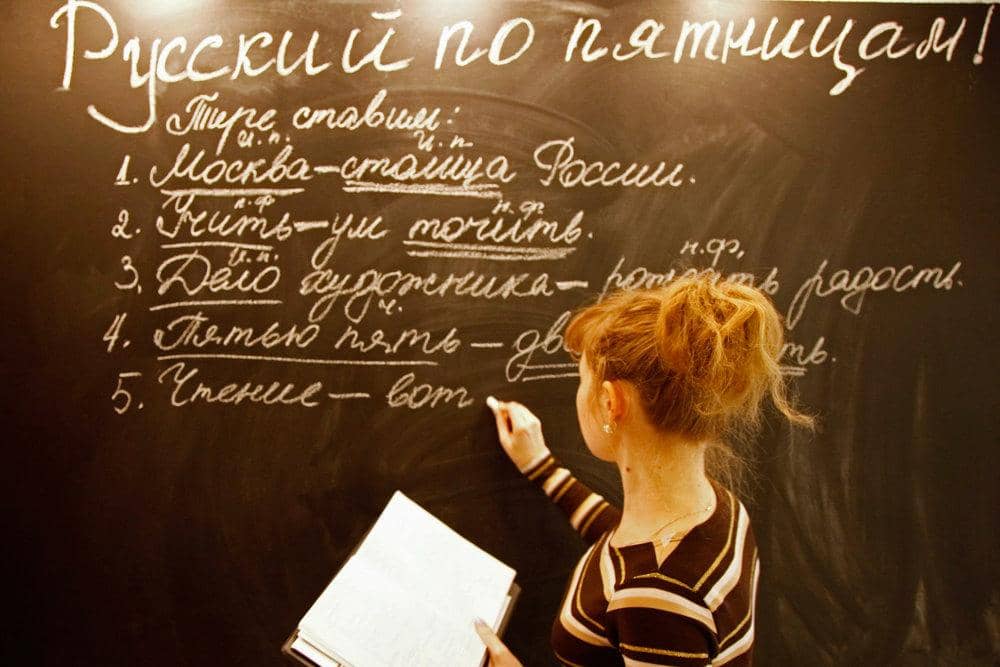 Русский по пятницам!
Тире ставим:
И.п. И.п
1. Москва – столица России.
н.ф н.ф.
2. Учить – ум точить.
И.п. н.ф.
3. Дело художника – радость.
ч.
4. Пятью пять –
5. Чтение – вот